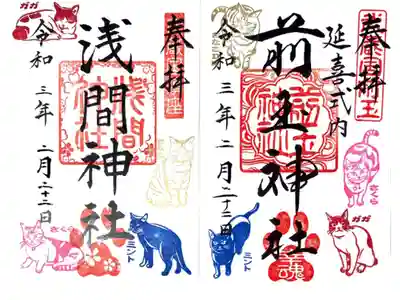 奉拝
延喜式内
前玉神社
令和三年二月二十二日
さくら
ガガ
ミント
奉拝
浅間神社
浅間神社
令和三年二月二十二日
ガガ
さくら
ミント